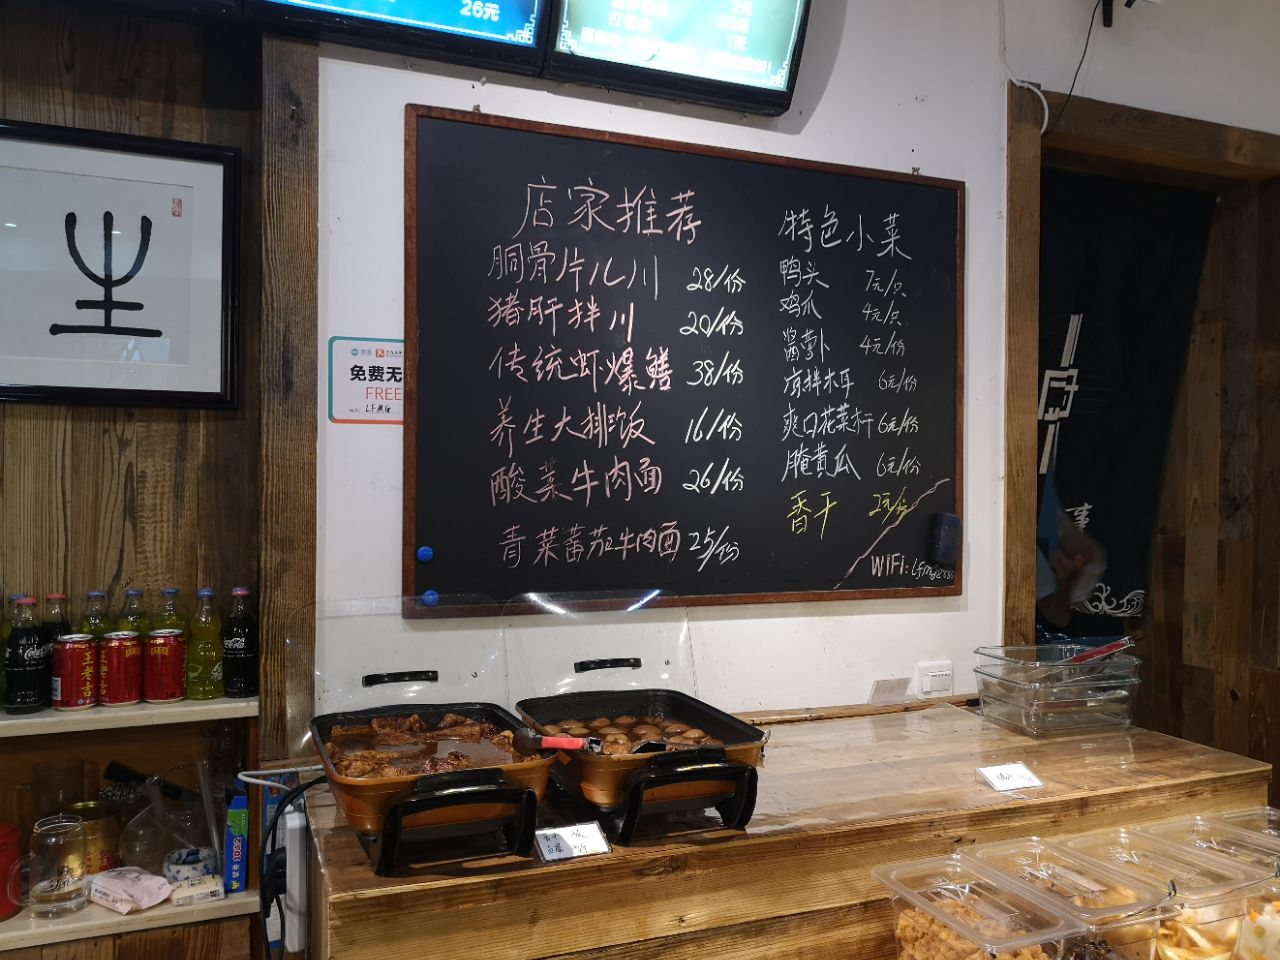 26元
2元
1元
店家推荐
胴骨片儿川 28/份
猪肝拌川 20/份
传统虾爆鳝 38/份
养生大排饭 16/份
酸菜牛肉面 26/份
青菜蕃茄牛肉面 25/份
特色小菜
鸭头 7元/只
鸡爪 4元/只
酱萝卜 4元/份
凉拌木耳 6元/份
爽口花菜杆 6元/份
腌黄瓜 6元/份
香干 2元/份
WiFi:
免费无
FREE
LFMG
王老吉
Coca-Cola
事